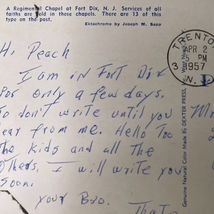 A Regimental Chapel at Fort Dix, N. J. Services of all
faiths are held in these chapels. There are 13 of this
type on the post.
Ektachrome by Joseph M. Sapp
TRENTON
APR 2
5 PM
1957
N.
H. Peach
I am in Fort Dix
for only a few days.
So don't write until you
hear from me. Hello Too
the kids and all the
Others, I will write you
Soon.
your Bro.
Genuine Natural Color Made By DEXTER PRESS,